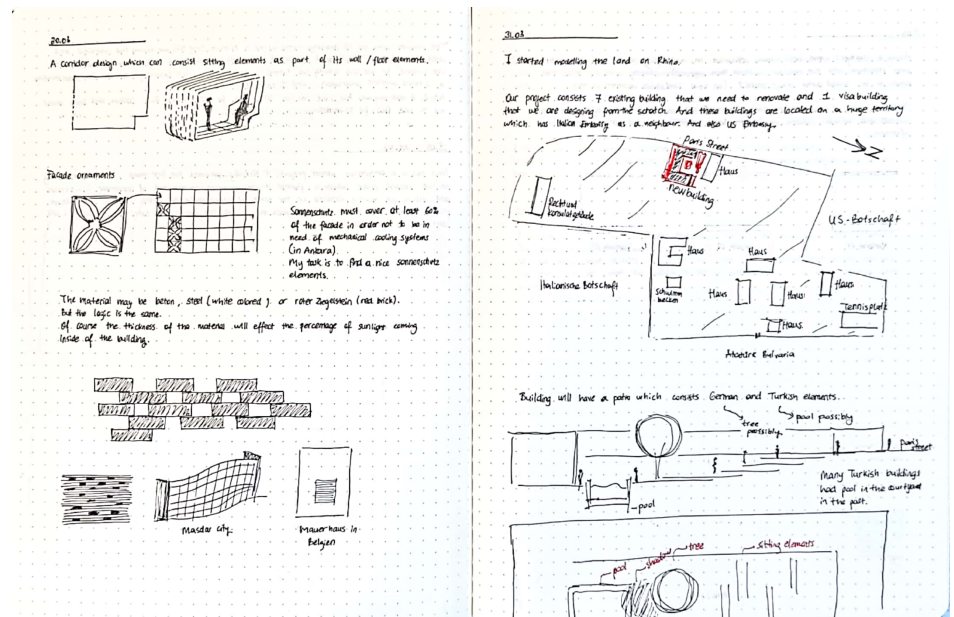 20.03
A corridor design which can consist sitting elements as part of its wall / floor elements.
Facade ornaments
Sonnenschutz must cover at least 60%
of the facade in order not to be in
need of mechanical cooling systems
(in Ankara)
My task is to find a nice sonnenschutz
elements.
The material may be beton, steel (white colored) or roter Ziegelstein (red brick).
But the logic is the same.
Of course the thickness of the material will effect the percentage of sunlight coming
inside of the building.
Masdar city
Mauerhaus in
Belgien
31.03
I started modelling the land on Rhino.
Our project consists 7 existing building that we need to renovate and 1 visa building
that we are designing from the scratch. And these buildings are located on a huge territory
which has Italian Embassy as a neighbour. And also US Embassy.
Paris Street
Haus
new building
Z
Recht und
Konsulatgebäude
US-Botschaft
Haus
Haus
Italienische Botschaft
Schwimm
becken
Haus
Haus
Haus
Tennisplatz
Haus
Atatürk Bulvaria
Building will have a patio which consists German and Turkish elements.
tree
possibly
pool possibly
paris
street
pool
Many Turkish buildings
had pool in the courtyard
in the past.
pool
shadow
tree
sitting elements